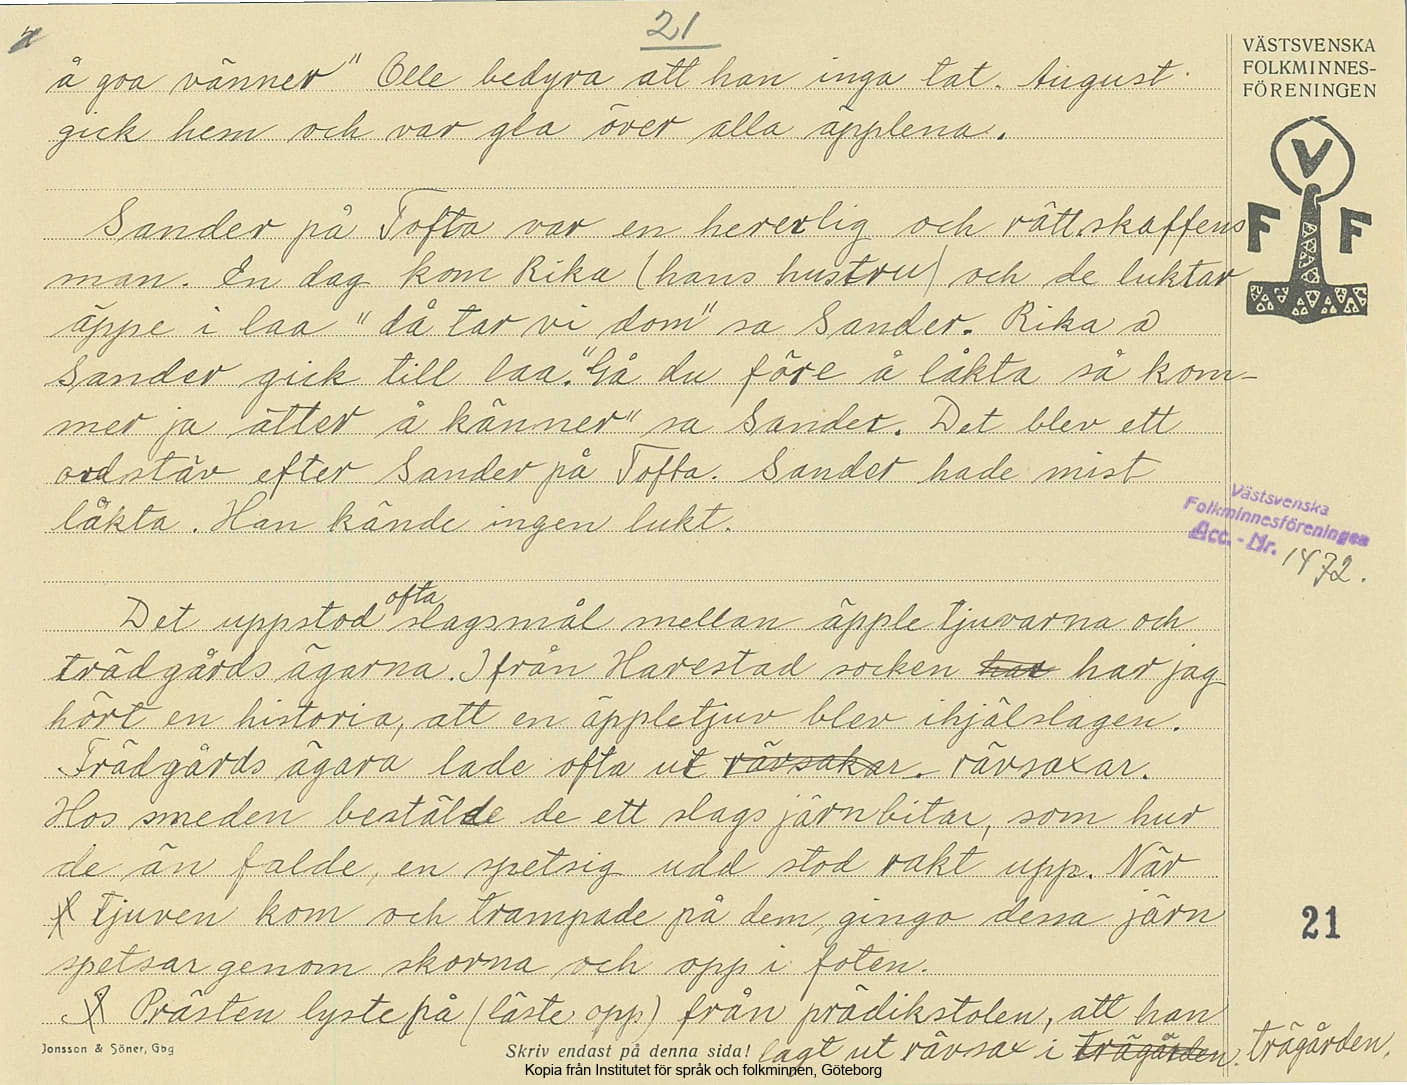 21
å goa vänner" Olle bedyra att han inga tat. August
gick hem och var gla över alla äpplena.
Sander på Tofta var en hererlig och rättskaffens
man. En dag kom Rika (hans hustru) och de luktar
äppe i laa "då tar vi dom" sa Sander. Rika å
Sander gick till laa. "Gå du före å låkta så kom-
mer ja ätter å känner" sa Sander. Det blev ett
ordstäv efter Sander på Tofta. Sander hade mist
låkta. Han kände ingen lukt.
Det uppstod ofta slagsmål mellan äpple tjuvarna och
trädgårds ägarna. Ifrån Harestad socken har har jag
hört en historia, att en äppletjuv blev ihjälslagen.
Trädgårds ägara lade ofta ut rävsakar. rävsaxar.
Hos smeden bestälde de ett slags järnbitar, som hur
de än falde, en spetsig udd stod rakt upp. När
tjuven kom och trampade på dem, gingo dessa järn
spetsar genom skorna och opp i foten.
Prästen lyste på (läste opp) från prädikstolen, att han
lagt ut rävsax i trägården. trägården.
VÄSTSVENSKA
FOLKMINNES-
FÖRENINGEN
V
F F
Västsvenska
Folkminnesföreningen
Acc. - Nr. 1472.
21
Jonsson & Söner, Gbg
Skriv endast på denna sida!
Kopia från Institutet för språk och folkminnen, Göteborg